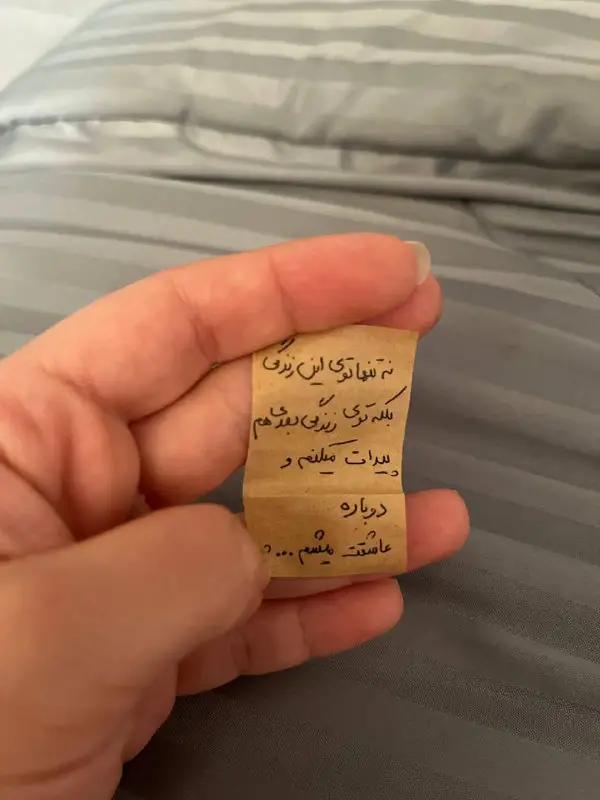 نه تنها توی این زندگی
بلکه توی زندگی بعدی هم
پیدات میکنم و
دوباره
عاشقت میشم...